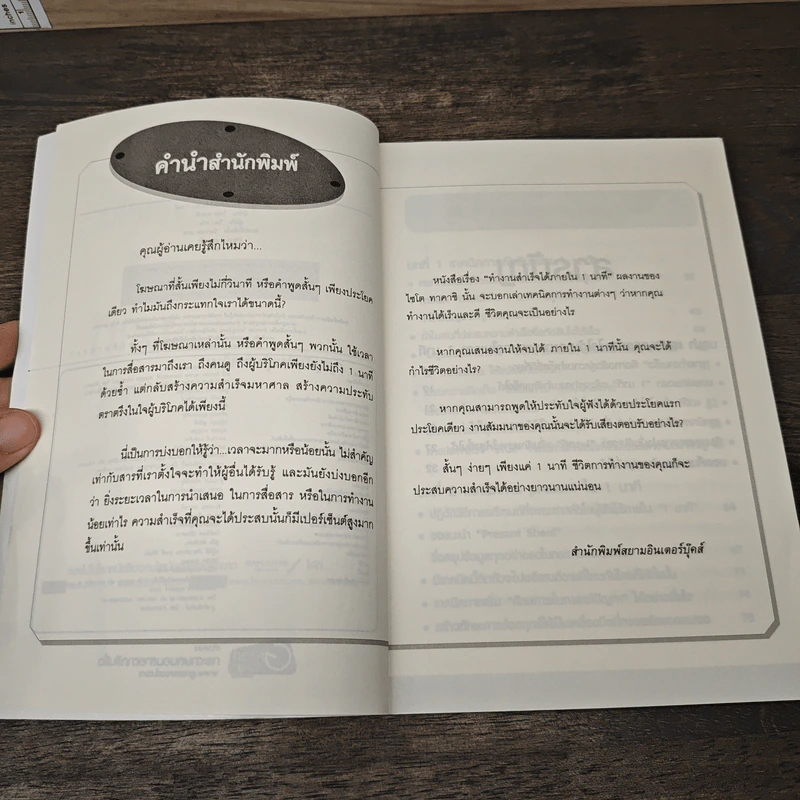 คำนำสำนักพิมพ์
คุณผู้อ่านเคยรู้สึกไหมว่า...
โฆษณาที่สั้นเพียงไม่กี่วินาที หรือคำพูดสั้นๆ เพียงประโยค
เดียว ทำไมมันถึงกระแทกใจเราได้ขนาดนี้?
ทั้งๆ ที่โฆษณาเหล่านั้น หรือคำพูดสั้นๆ พวกนั้น ใช้เวลา
ในการสื่อสารมาถึงเรา ถึงคนดู ถึงผู้บริโภคเพียงยังไม่ถึง 1 นาที
ด้วยซ้ำ แต่กลับสร้างความสำเร็จมหาศาล สร้างความประทับ
ตราตรึงในใจผู้บริโภคได้เพียงนี้
นี่เป็นการบ่งบอกให้รู้ว่า...เวลาจะมากหรือน้อยนั้น ไม่สำคัญ
เท่ากับสารที่เราตั้งใจจะทำให้ผู้อื่นได้รับรู้ และมันยังบ่งบอกอีก
ว่า ยิ่งระยะเวลาในการนำเสนอ ในการสื่อสาร หรือในการทำงาน
น้อยเท่าไร ความสำเร็จที่คุณจะได้ประสบนั้นก็มีเปอร์เซ็นต์สูงมาก
ขึ้นเท่านั้น
หนังสือเรื่อง "ทำงานสำเร็จได้ภายใน 1 นาที" ผลงานของ
ไซโต ทาคาชิ นั้น จะบอกเล่าเทคนิคการทำงานต่างๆ ว่าหากคุณ
ทำงานได้เร็วและดี ชีวิตคุณจะเป็นอย่างไร
หากคุณเสนองานให้จบได้ ภายใน 1 นาทีนั้น คุณจะได้
กำไรชีวิตอย่างไร?
หากคุณสามารถพูดให้ประทับใจผู้ฟังได้ด้วยประโยคแรก
ประโยคเดียว งานสัมมนาของคุณนั้นจะได้รับเสียงตอบรับอย่างไร?
สั้นๆ ง่ายๆ เพียงแค่ 1 นาที ชีวิตการทำงานของคุณก็จะ
ประสบความสำเร็จได้อย่างยาวนานแน่นอน
สำนักพิมพ์สยามอินเตอร์บุ๊คส์